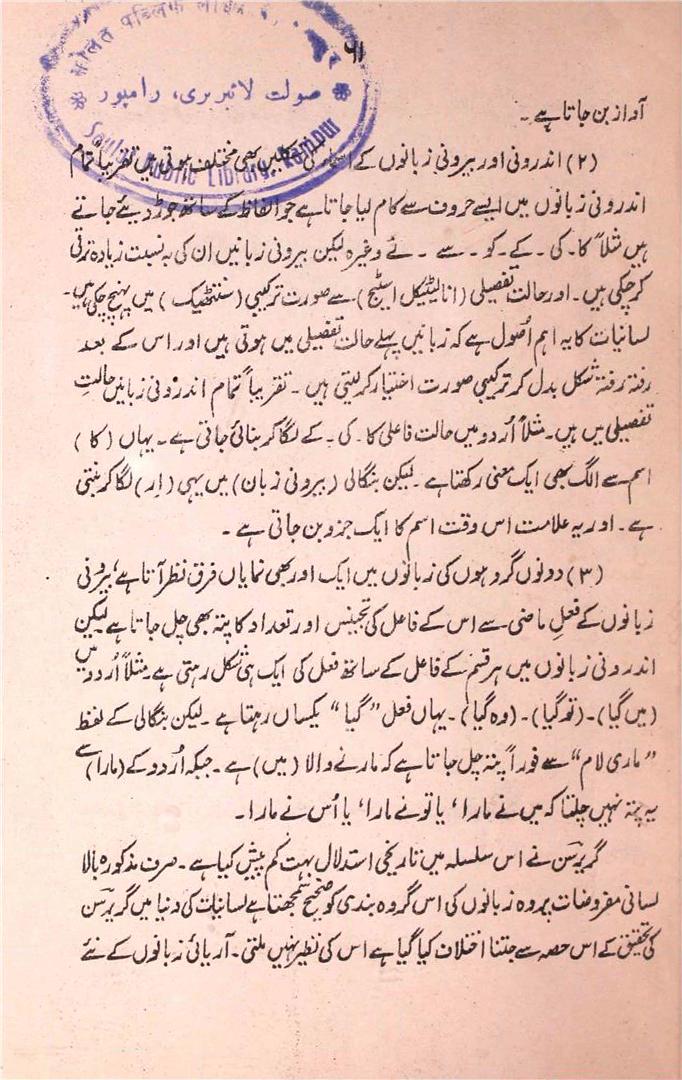 सौलत पब्लिक लाइब्रेरी
صولت لائبریری، رامپور
Saulat Public Library, Rampur
۶۱
آواز بن جاتا ہے۔
(۲) اندرونی اور بیرونی زبانوں کے اسماء کی شکلیں بھی مختلف ہوتی ہیں تقریباً تمام
اندرونی زبانوں میں ایسے حروف سے کام لیا جاتا ہے جو الفاظ کے ساتھ جوڑ دیئے جاتے
ہیں مثلاً کا۔ کی۔ کے۔ کو۔ سے۔ نے وغیرہ لیکن بیرونی زبانیں ان کی بہ نسبت زیادہ ترقی
کر چکی ہیں۔ اور حالت تفصیلی (انالیٹیکل اسٹیج) سے صورت ترکیبی (سنتھٹیک) میں پہنچ چکی ہیں۔
لسانیات کا یہ اہم اُصول ہے کہ زبانیں پہلے حالت تفصیلی میں ہوتی ہیں اور اس کے بعد
رفتہ رفتہ شکل بدل کر ترکیبی صورت اختیار کر لیتی ہیں۔ تقریباً تمام اندرونی زبانیں حالتِ
تفصیلی میں ہیں۔ مثلاً اُردو میں حالت فاعلی کا۔ کی۔ کے لگا کر بنائی جاتی ہے۔ یہاں (کا)
اسم سے الگ بھی ایک معنی رکھتا ہے۔ لیکن بنگالی (بیرونی زبان) میں یہی (اِر) لگا کر بنتی
ہے۔ اور یہ علامت اس وقت اسم کا ایک جزو بن جاتی ہے۔
(۳) دونوں گروہوں کی زبانوں میں ایک اور بھی نمایاں فرق نظر آتا ہے، بیرونی
زبانوں کے فعلِ ماضی سے اس کے فاعل کی تجنیس اور تعداد کا پتہ بھی چل جاتا ہے لیکن
اندرونی زبانوں میں ہر قسم کے فاعل کے ساتھ فعل کی ایک ہی شکل رہتی ہے۔ مثلاً اُردو میں
(میں گیا)۔ (تو گیا)۔ (وہ گیا)۔ یہاں فعل "گیا" یکساں رہتا ہے۔ لیکن بنگالی کے لفظ
"ماری لام" سے فوراً پتہ چل جاتا ہے کہ مارنے والا (میں) ہے۔ جبکہ اُردو کے (مارا) سے
یہ پتہ نہیں چلتا کہ میں نے مارا، یا تو نے مارا، یا اُس نے مارا۔
گریرسن نے اس سلسلہ میں تاریخی استدلال بہت کم پیش کیا ہے۔ صرف مذکورہ بالا
لسانی مفروضات پر وہ زبانوں کی اس گروہ بندی کو صحیح سمجھتا ہے لسانیات کی دنیا میں گریرسن
کی تحقیق کے اس حصہ سے جتنا اختلاف کیا گیا ہے اس کی نظیر نہیں ملتی۔ آریائی زبانوں کے نئے